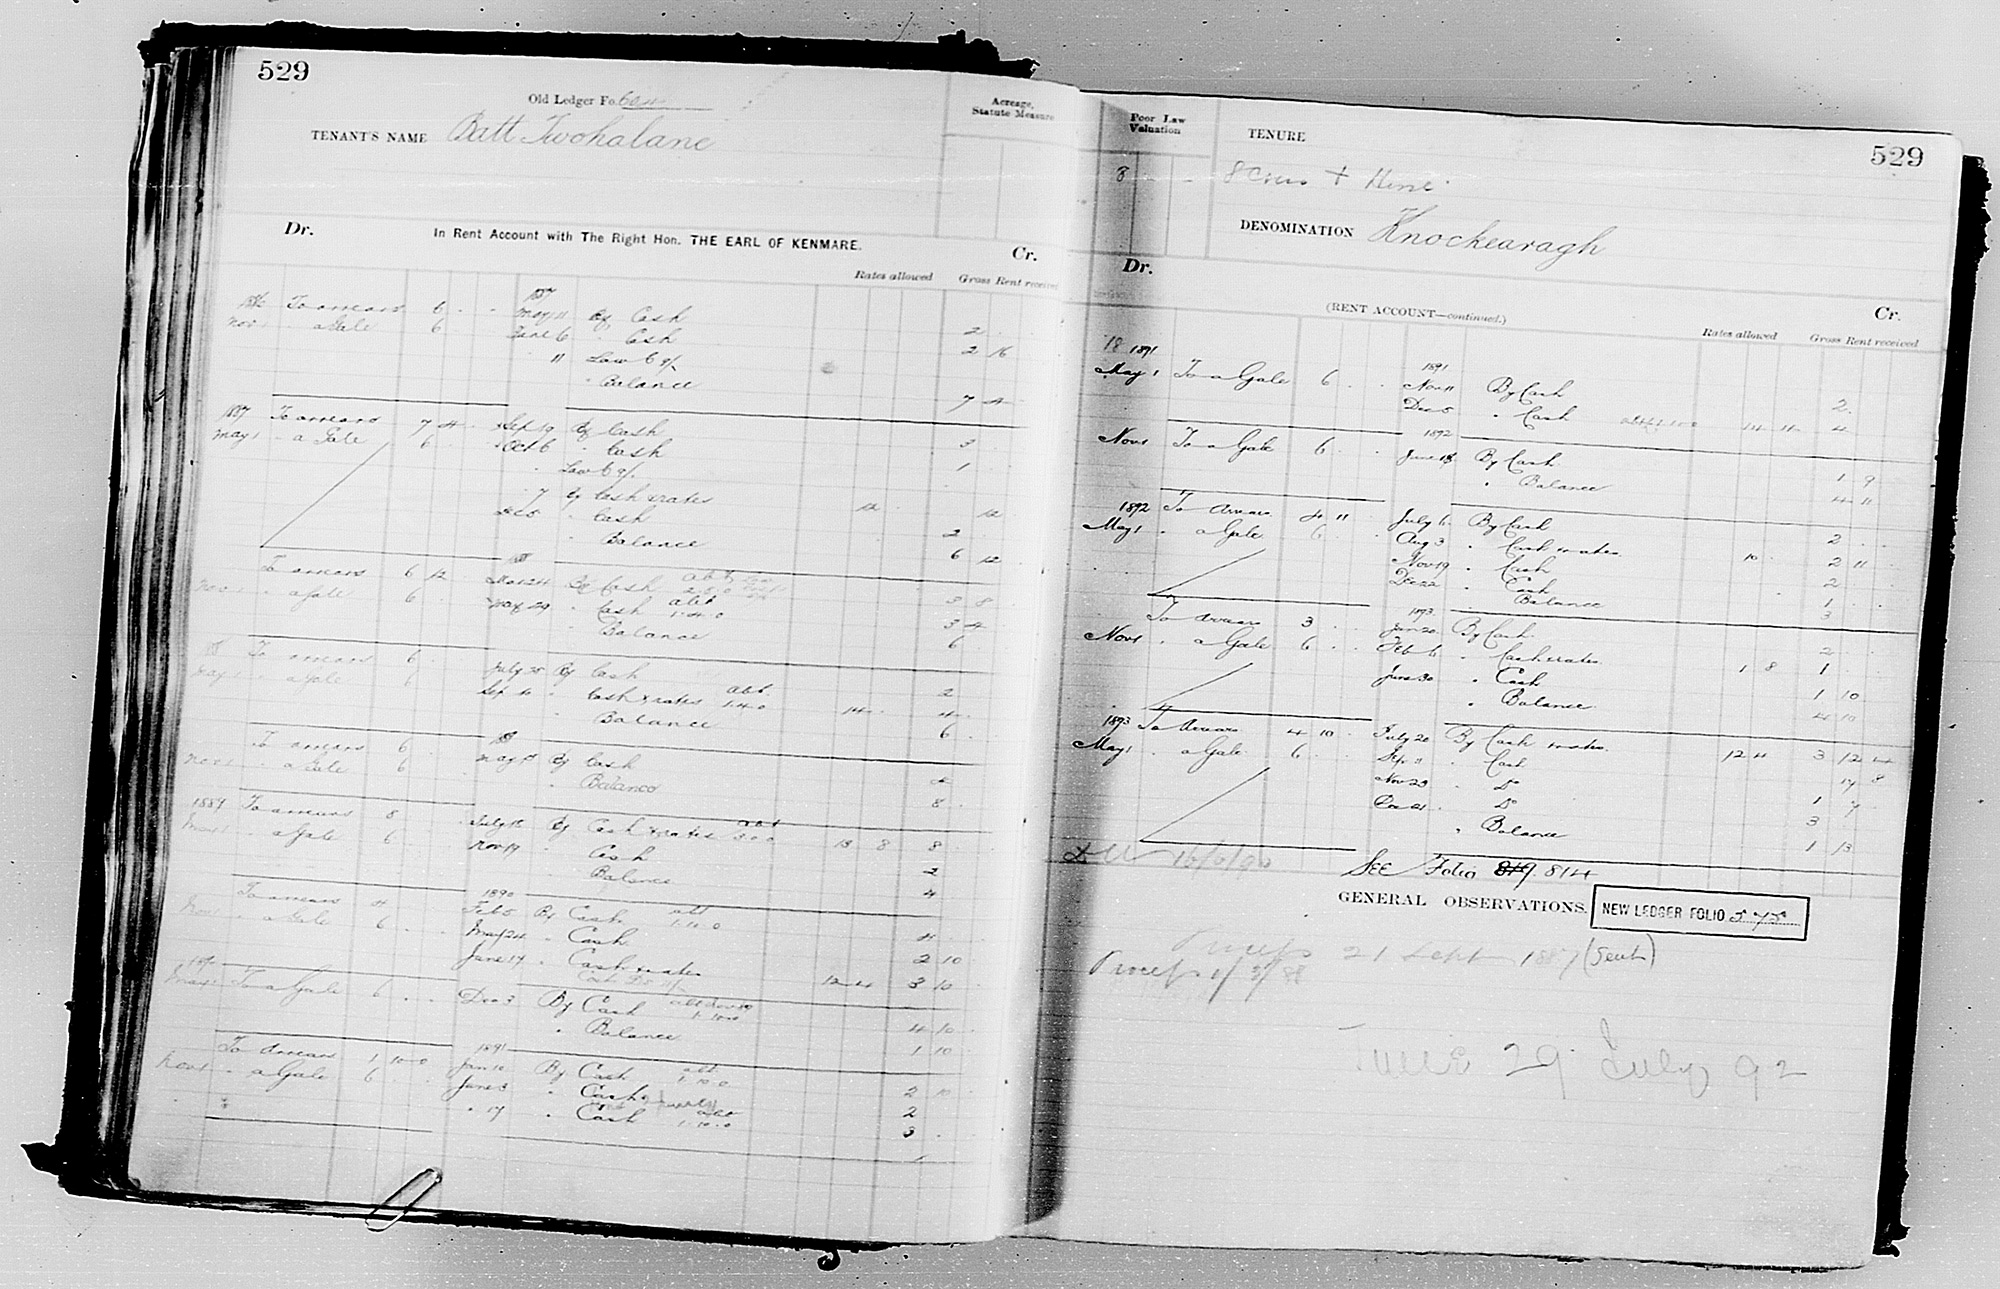 529
Old Ledger Fo.
TENANT'S NAME Batt Twohalane
Acreage, Statute Measure
Dr. In Rent Account with The Right Hon. THE EARL OF KENMARE. Cr.
Rates allowed Gross Rent received
1887
1886 To arrears 6 . . May 11 By Cash 2 . .
Nov 1 " a Gale 6 June 6 " Cash 2 16
" 11 Law C s/
" Balance 7 4
1887 To arrears 7 4 Sep 19 By Cash 3
May 1 " a Gale 6 Oct 6 " Cash 1
" Law C s/.
" 7 By Cash & rates 12 12
Dec 5 " Cash 2
" Balance 6 12
To arrears 6 12 Mar 24 By Cash abt 3 8
Nov 1 " a Gale 6 May 29 " Cash abt 1.4.0 3 4
" Balance 6
To arrears 6 July 25 By Cash 2
May 1 " a Gale 6 Sep 10 " Cash & rates abt. 1.4.0 14 4
" Balance 6
To arrears 6 May 18 By Cash 4
Nov 1 " a Gale 6 " Balance 8
1889 To arrears 8 July 18 By Cash & rates abt 3.0.0 13 8 8
May 1 " a Gale 6 Nov 19 " Cash 2
" Balance 4
1890
To arrears 4 Feb 5 By Cash abt 1.10.0 4
Nov 1 " a Gale 6 May 24 " Cash 2 10
June 17 " Cash & rates 12 4 3 10
1890
May 1 To a Gale 6 . . Dec 3 By Cash 1.10.0 4 10
" Balance 1 10
1891
To Arrears 1 10 0 Jan 10 By Cash abt 1.10.0 2 10
Nov 1 " a Gale 6 June 3 " Cash 2
" 17 " Cash abt 1.10.0 3
Poor Law Valuation
TENURE
529
8
DENOMINATION Knockearagh
Dr. (RENT ACCOUNT—continued.) Cr.
Rates allowed Gross Rent received
18 1891 1891
May 1 To a Gale 6 . . Nov 11 By Cash 2
Dec 5 " Cash 14 11 4
1892
Nov 1 To a Gale 6 . . June 18 By Cash 1 9
" Balance 4 11
1892 To Arrears 4 11 July 6 By Cash 2
May 1 " a Gale 6 Aug 3 " Cash & rates 10 2 11
Nov 19 " Cash 2
Dec 22 " Cash 1
Balance 3
1893
To Arrears 3 . . Jan 20 By Cash 2
Nov 1 " a Gale 6 . . Feb 6 " Cash & rates 1 8 1
June 30 " Cash 1 10
" Balance 4 10
1893 To Arrears 4 10 July 20 By Cash & rates 12 4 3 12 4
May 1 " a Gale 6 Sep 11 " Cash 17 8
Nov 23 " Do 1 7
Dec 21 " Do 3
" Balance 1 13
16/6/90
See Folio 819 814
GENERAL OBSERVATIONS.
NEW LEDGER FOLIO 575
Process 21 Sept 1887 (Sent)
Process 1/5/88
29 July 92